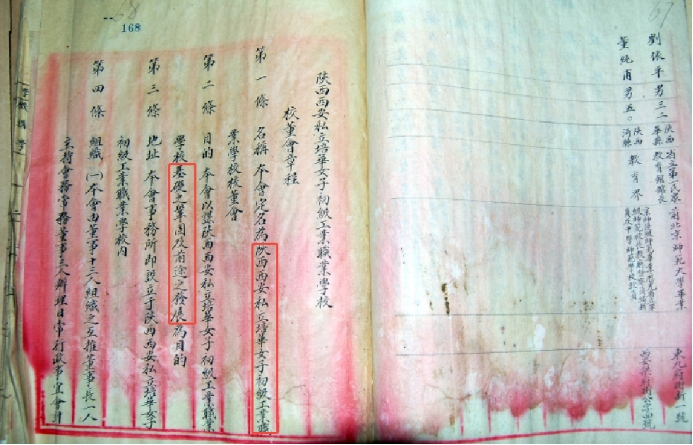 168
陝西西安私立培華女子初級工業職業學校
校董會章程
第一條 名稱 本會定名為陝西西安私立培華女子初級工業職
業學校校董會
第二條 目的 本會以謀陝西西安私立培華女子初級工業職業
學校基礎之鞏固及前途之發展為目的
第三條 地址 本會事務所即設立于陝西西安私立培華女子
初級工業職業學校內
第四條 組織 (一)本會由董事十三人組織之互推董事長一人
主持會務常務董事三人辦理日常行政事宜會計
67
劉依平 男 三二 陝西華縣 教育館館長 前北京師範大學畢業
董純甫 男 五〇 陝西 教育界